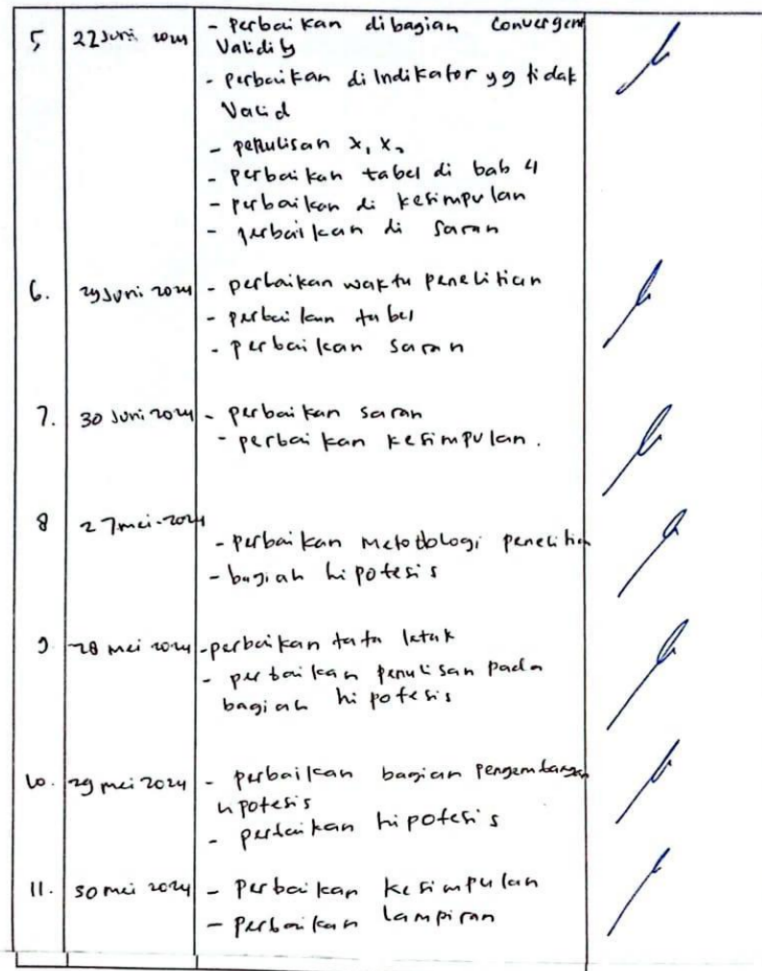 5, 22 Juni 2024 - perbaikan dibagian Convergent
Validity
- perbaikan di Indikator yg tidak
Valid
- penulisan x₁ x₂
- perbaikan tabel di bab 4
- perbaikan di kesimpulan
- perbaikan di saran
6. 29 Juni 2024 - perbaikan waktu penelitian
- perbaikan tabel
- perbaikan saran
7. 30 Juni 2024 - perbaikan saran
- perbaikan kesimpulan.
8 27 mei-2024
- perbaikan Metodologi penelitian
- bagian hipotesis
9 28 mei 2024 - perbaikan tata letak
- perbaikan penulisan pada
bagian hipotesis
10. 29 mei 2024 - perbaikan bagian pengembangan
hipotesis
- perbaikan hipotesis
11. 30 mei 2024 - Perbaikan kesimpulan
- Perbaikan lampiran